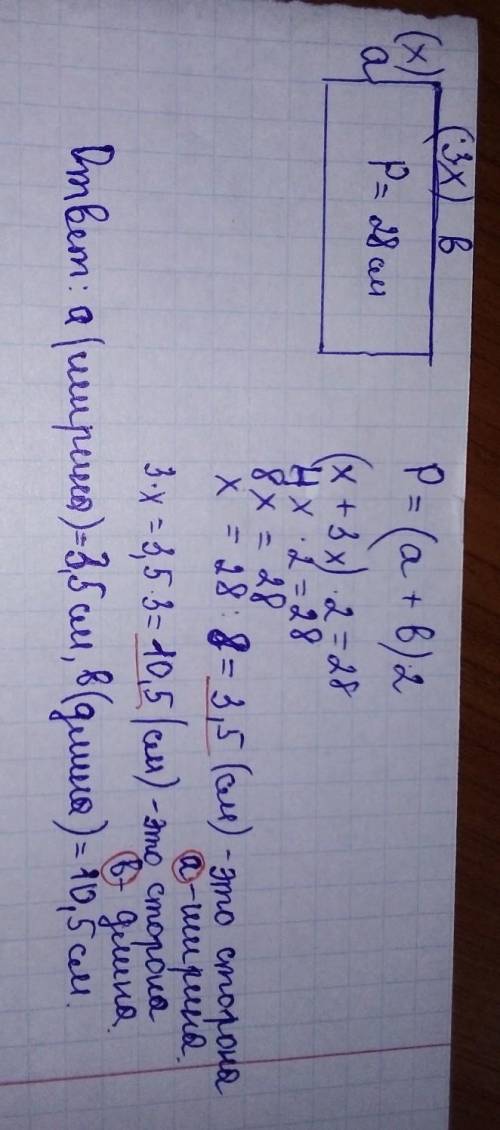 (3x) в
(x) a
P = 28 см
P = (a + в) · 2
(x + 3x) · 2 = 28
4x · 2 = 28
8x = 28
x = 28 : 8 = 3,5 (см) - это сторона
a - ширина.
3 · x = 3,5 · 3 = 10,5 (см) - это сторона
в - длина.
Ответ: a (ширина) = 3,5 см, в (длина) = 10,5 см.